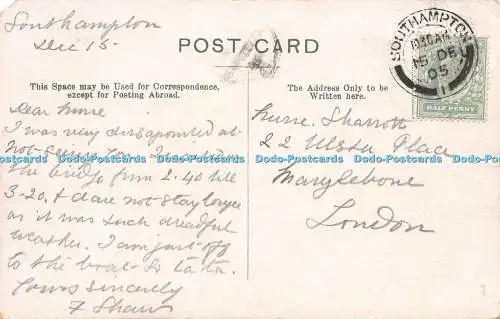 Southampton
Dec 15
POST CARD
SOUTHAMPTON
10.30 AM
15 DE
05
1
HALF PENNY
This Space may be Used for Correspondence,
except for Posting Abroad.
The Address Only to be
Written here.
Dear Nurse
I was very disappointed at
not seeing you. I
the bridge from 2.40 till
3-20, & dare not stay longer
as it was such dreadful
weather. I am just off
to the boat. So ta ta.
Yours sincerely
F Shaw
Nurse Sharrott
22 Ulster Place
Marylebone
London
Dodo-Postcards Dodo-Postcards Dodo-Postcards Dodo-Postcards Dodo-Postcards Dodo-Postcards